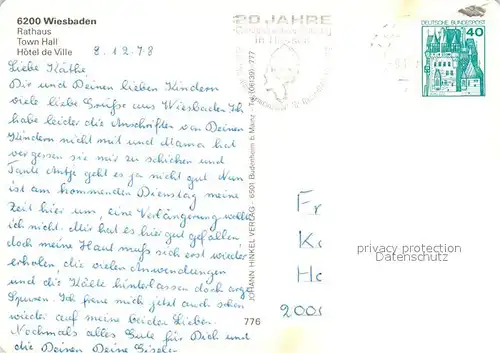 6200 Wiesbaden
Rathaus
Town Hall
Hôtel de Ville
8.12.78
20 JAHRE
DEUTSCHE BUNDESPOST
40
Liebe Käthe
Dir und Deinen lieben Kindern
viele liebe Grüße aus Wiesbaden. Ich
habe leider die Anschriften von Deinen
Kindern nicht mit und Mama hat
vergessen sie mir zu schicken und
Tante geht es ja nicht gut. Nun
ist am kommenden Dienstag meine
Zeit hier um, eine Verlängerung wollte
ich nicht. Mir hat es hier gut gefallen
doch meine Haut muß sich erst wieder
erholen, die vielen Anwendungen
und die Kälte hinterlassen doch arge
Spuren. Ich freue mich jetzt auch schon
wieder auf meine beiden Lieben.
Nochmals alles Gute für Dich und
die Deinen Deine Gisela
JOHANN HINKEL VERLAG · 6501 Budenheim b. Mainz · Tel. (06139) 777
776
Fr
K
H
2000
privacy protection
Datenschutz